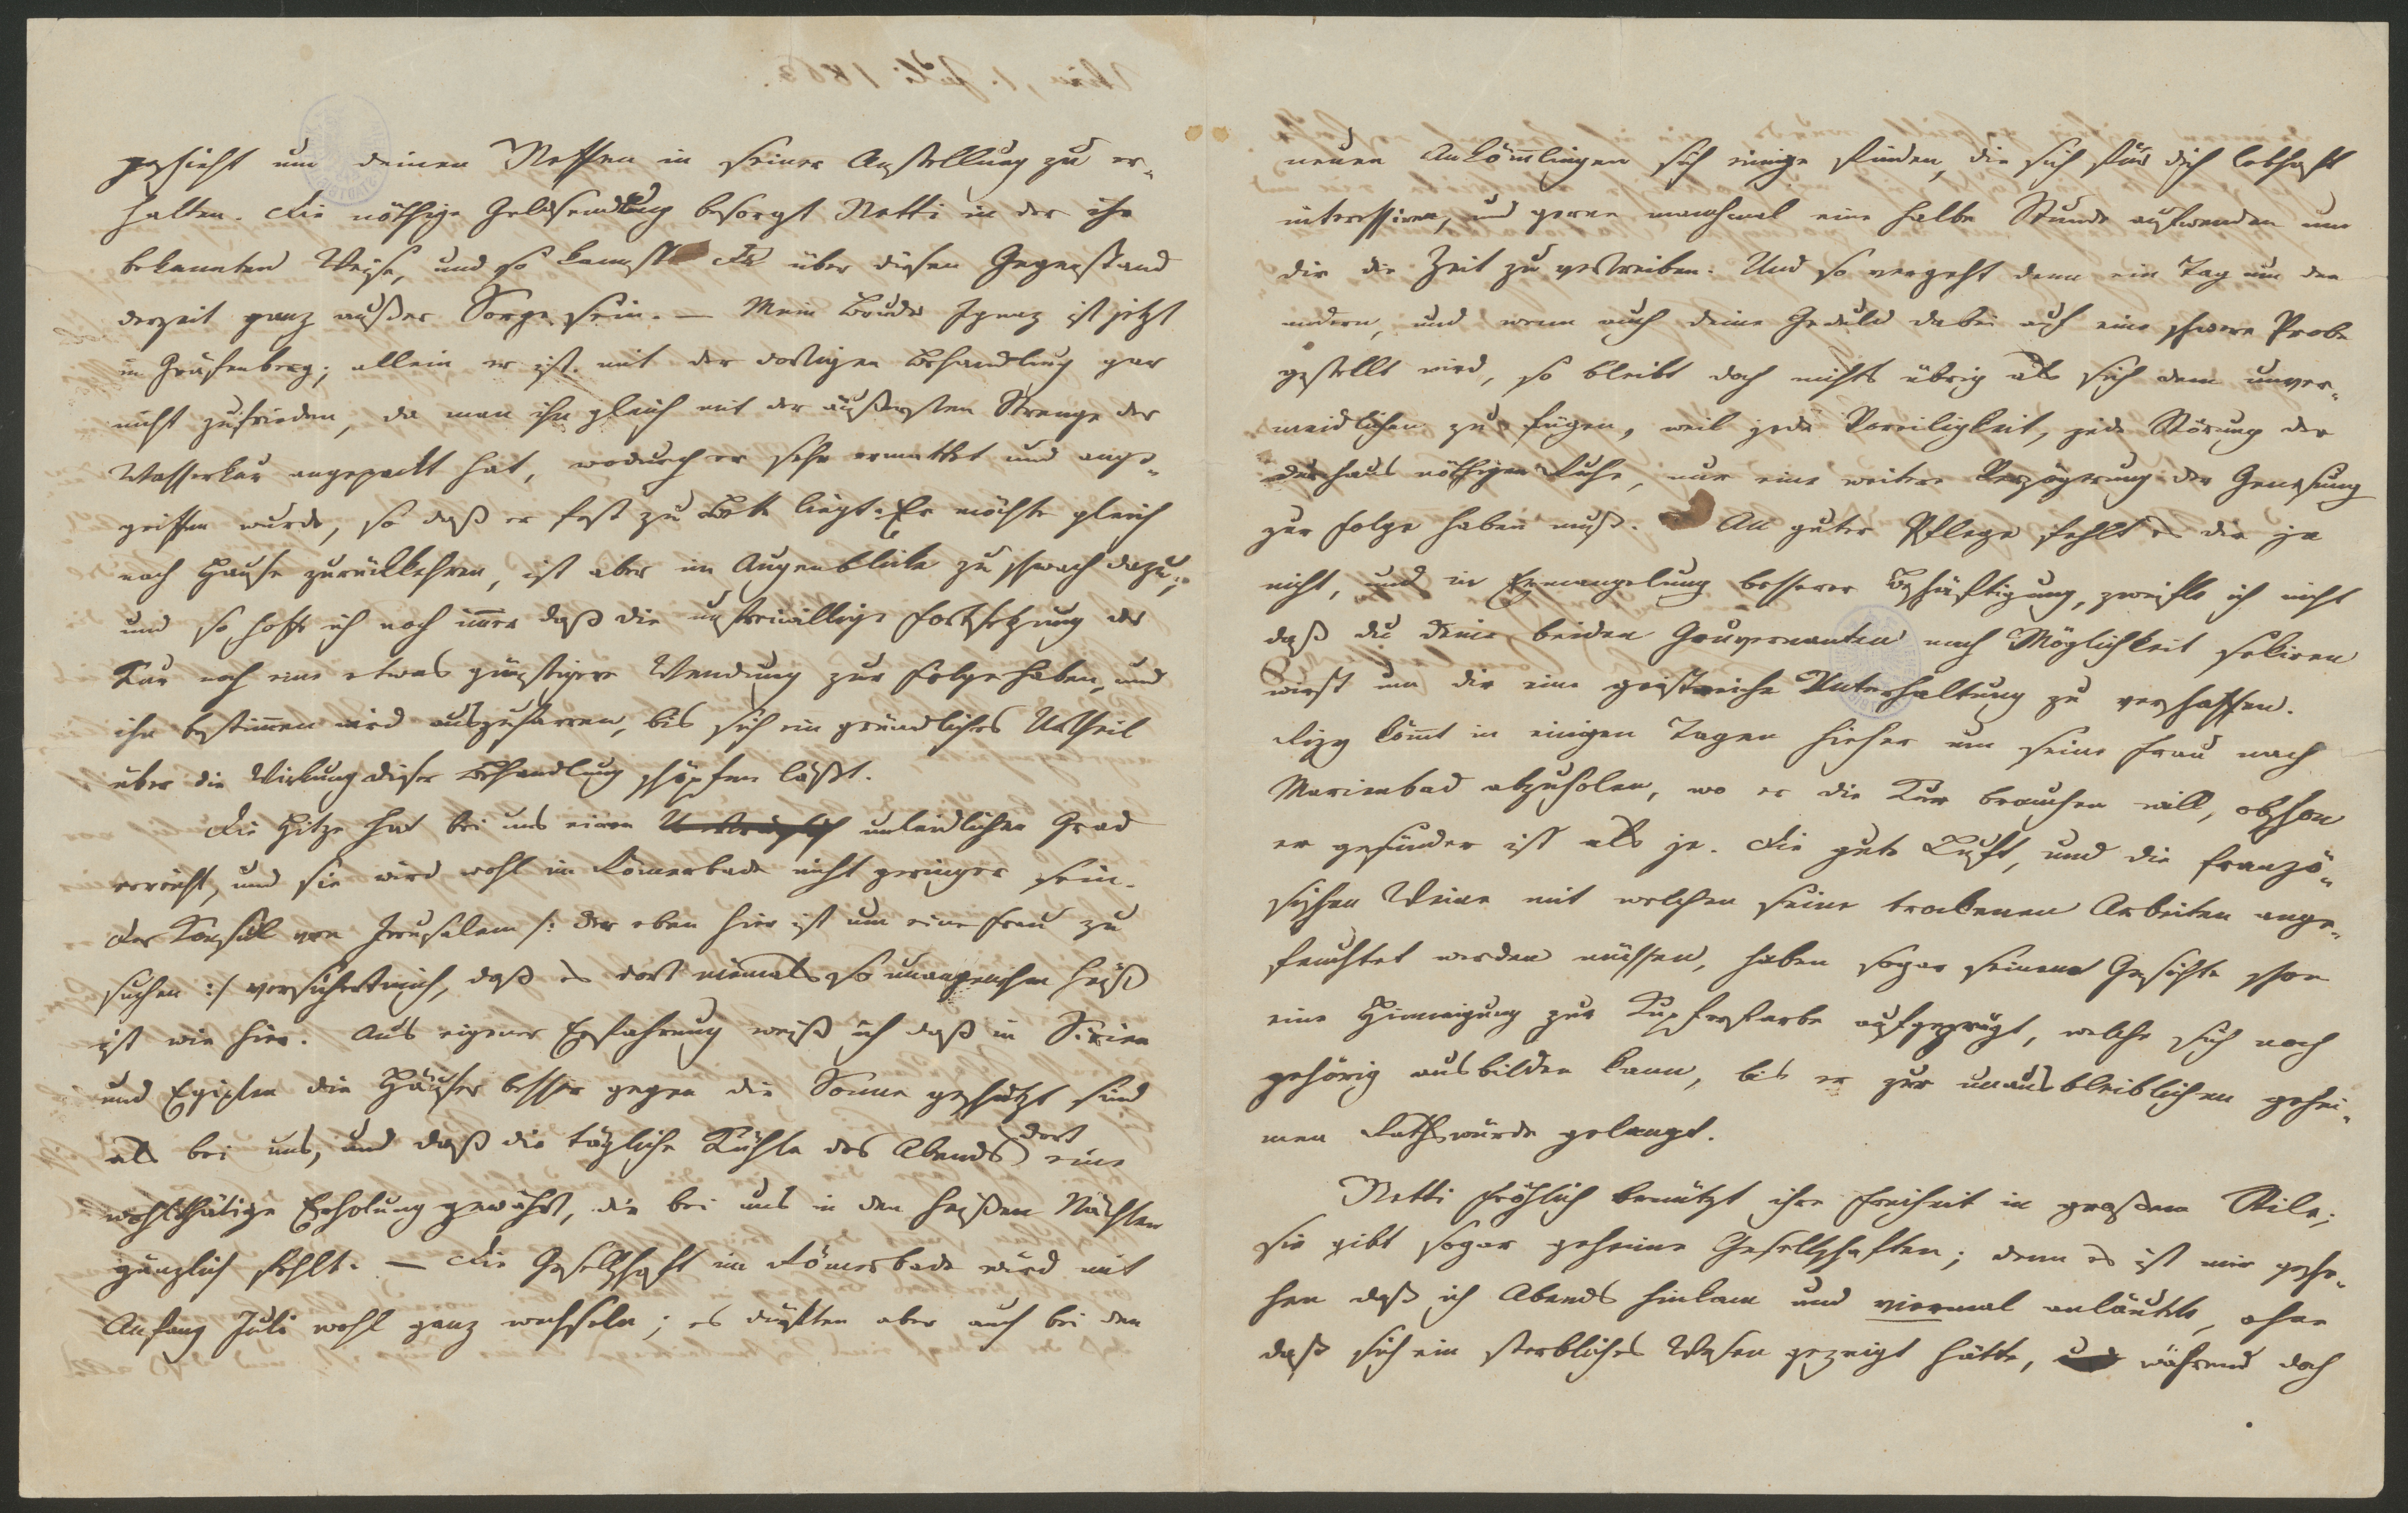 geschieht um deinen Neffen in seiner Anstellung zu er-
halten. Die nöthige Geldsendung besorgt Netti in der ihr
bekannten Weise, und so kannst Du über diesen Gegenstand
derzeit ganz außer Sorge sein. — Mein Bruder Ignaz ist jetzt
in Gräfenberg; allein er ist mit der dortigen Behandlung gar
nicht zufrieden, da man ihn gleich mit der äußersten Strenge der
Wasserkur angepackt hat, wodurch er sehr ermattet und ange-
griffen wurde, so daß er fest zu Bette liegt. Er möchte gleich
nach Hause zurückkehren, ist aber im Augenblicke zu schwach dazu;
und so hoffe ich noch im̅er daß die unfreiwillige Fortsetzung der
Kur noch eine etwas günstigere Wendung zur Folge haben, und
ihn bestim̅en wird auszuharren, bis sich ein gründliches Urtheil
über die Wirkung dieser Behandlung schöpfen läßt.
Die Hitze hat bei uns einen unleidlichen Grad
erreicht, und sie wird wohl im Römerbade nicht geringer sein.
Der Konsul von Jerusalem /: der eben hier ist um eine Frau zu
suchen :/ versichert mich, daß es dort niemals so unangenehm heiß
ist wie hier. Aus eigener Erfahrung weiß ich daß in Sirien
und Egipten die Häuser besser gegen die Sonne geschützt sind
als bei uns, und daß die tägliche Kühle des Abends dort eine
wohlthätige Erholung gewährt, die bei uns in den heißen Nächten
gänzlich fehlt. — Die Gesellschaft im Römerbade wird mit
Anfang Juli wohl ganz wechseln; es dürften aber auch bei den
neuen Ankömlingen sich einige finden, die sich für dich lebhaft
interessiren, und gerne manchmal eine halbe Stunde aufwenden um
dir die Zeit zu vertreiben. Und so vergeht denn ein Tag um den
andern, und wenn auch deine Geduld dabei auf eine schwere Probe
gestellt wird, so bleibt doch nichts übrig als sich dem unver-
meidlichen zu fügen, weil jede Voreiligkeit, jede Störung der
durchaus nöthigen Ruhe, nur eine weitere Verzögerung der Genesung
zur Folge haben muß. An guter Pflege fehlt es dir ja
nicht, und in Ermangelung besserer Beschäftigung, zweifle ich nicht
daß du deine beiden Gouvernanten nach Möglichkeit sekiren
wirst um dir eine geistreiche Unterhaltung zu verschaffen.
köm̅t in einigen Tagen hieher um seine Frau nach
Marienbad abzuholen, wo er die Kur brauchen will, obschon
er gesünder ist als je. Die gute Luft, und die franzö-
sischen Weine mit welchen seine trockenen Arbeiten ange-
feuchtet werden müssen, haben sogar seinem Gesichte schon
eine Hinneigung zur Kupferfarbe aufgeprägt, welche sich noch
gehörig ausbilden kann, bis er zur unausbleiblichen gehei-
men Rathswürde gelangt.
Netti Fröhlich benützt ihre Freiheit in großem Stile;
sie gibt sogar geheime Gesellschaften; denn es ist mir gesche-
hen daß ich Abends hinkam und viermal anläutete, ohne
daß sich ein sterbliches Wesen gezeigt hätte, während doch